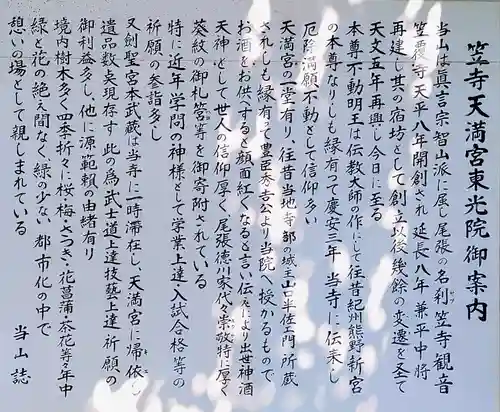 笠寺天満宮東光院御案内
当山は真言宗智山派に属し尾張の名刹笠寺観音
笠覆寺天平八年開創され延長八年兼平中将
再建し其の宿坊として創立以後幾餘の変遷を圣て
天文五年再興し今日に至る
本尊不動明王は伝教大師の作にして往昔紀州熊野新宮
の本尊なりしも縁有って慶安三年当寺に伝来し
厄除満願不動として信仰多い
天満宮の一堂有り、往昔当地寺部の城主山口半左ヱ門所蔵
されしも縁有って豊臣秀吉公より当院へ授かるもので
お酒をお供へすると顔面紅くなると言い伝により出世神酒
天神として世人の信仰厚く尾張徳川家代々崇敬特に厚く
葵紋の御札箱等を御寄附されている
特に近年学問の神様として学業上達・入試合格等の
祈願の参詣多し
又剣聖宮本武蔵は当寺に一時滞在し、天満宮に帰依し
遺品数点現存す此の為武士道上達技藝上達祈願の
御利益多し、他に源範頼の由緒有り
境内樹木多く四季折々に桜・梅・さつき・花菖蒲・奈花等々年中
緑と花の絶え間なく、緑の少ない都市化の中で
憩いの場として親しまれている
当山誌